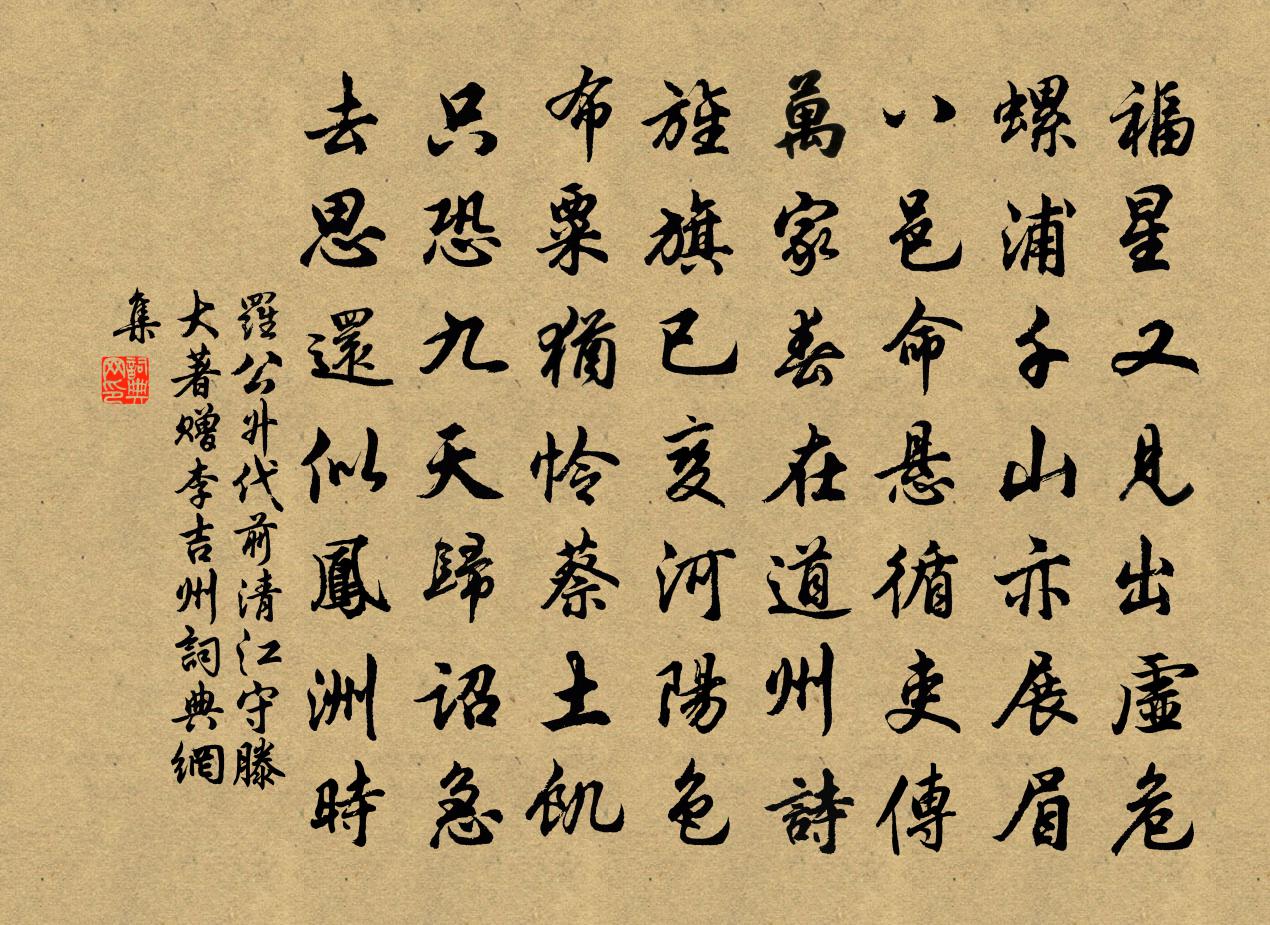 福星又見出虛危
螺浦千山亦展眉
八邑命懸循吏傳
萬家春在道州詩
旌旗已变河陽色
布粟猶憐蔡土飢
只恐九天歸詔急
去思還似鳳洲時
羅公升代前清江守滕
大著贈李吉州詞典網
集
詞典网印